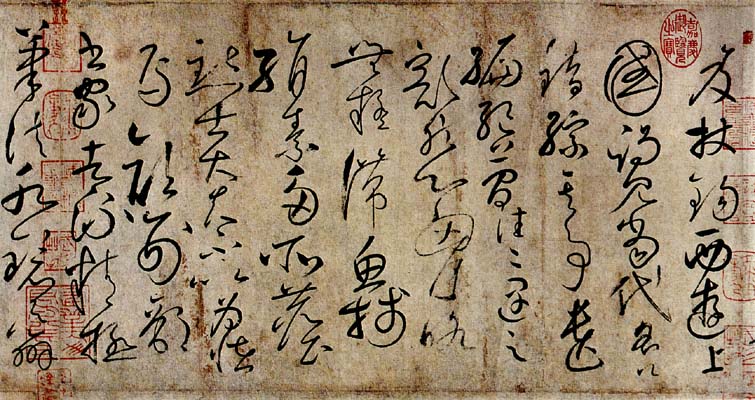 笈杖錫西遊上
國謁見當代名公
錯綜其事遺
編絕簡往往遇之
豁然心胸略
無疑滯魚牋
絹素多所塵
點士大夫不以為怪
焉顏刑部
書家者流精極
筆法水鏡之辨
嘉慶御覽之寶